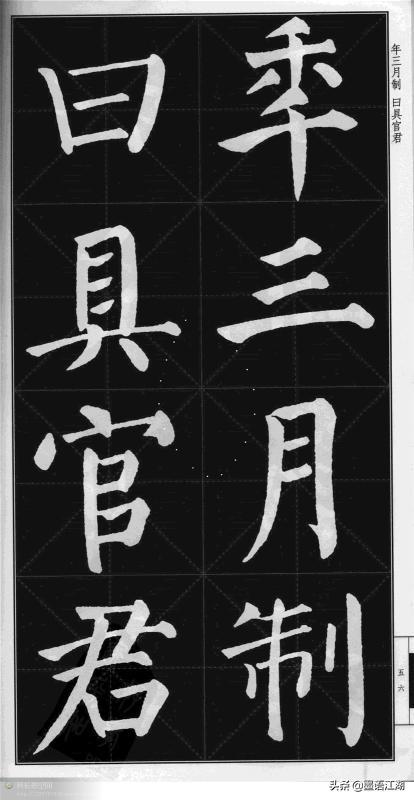 年三月制
曰具官君
年三月制 曰具官君
五六
头条 @墨语江湖